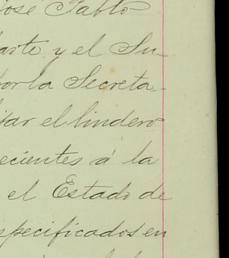 José Pablo
arte y el Su-
por la Secreta-
sar el lindero
ecientes á la
el Estado de
specificados en